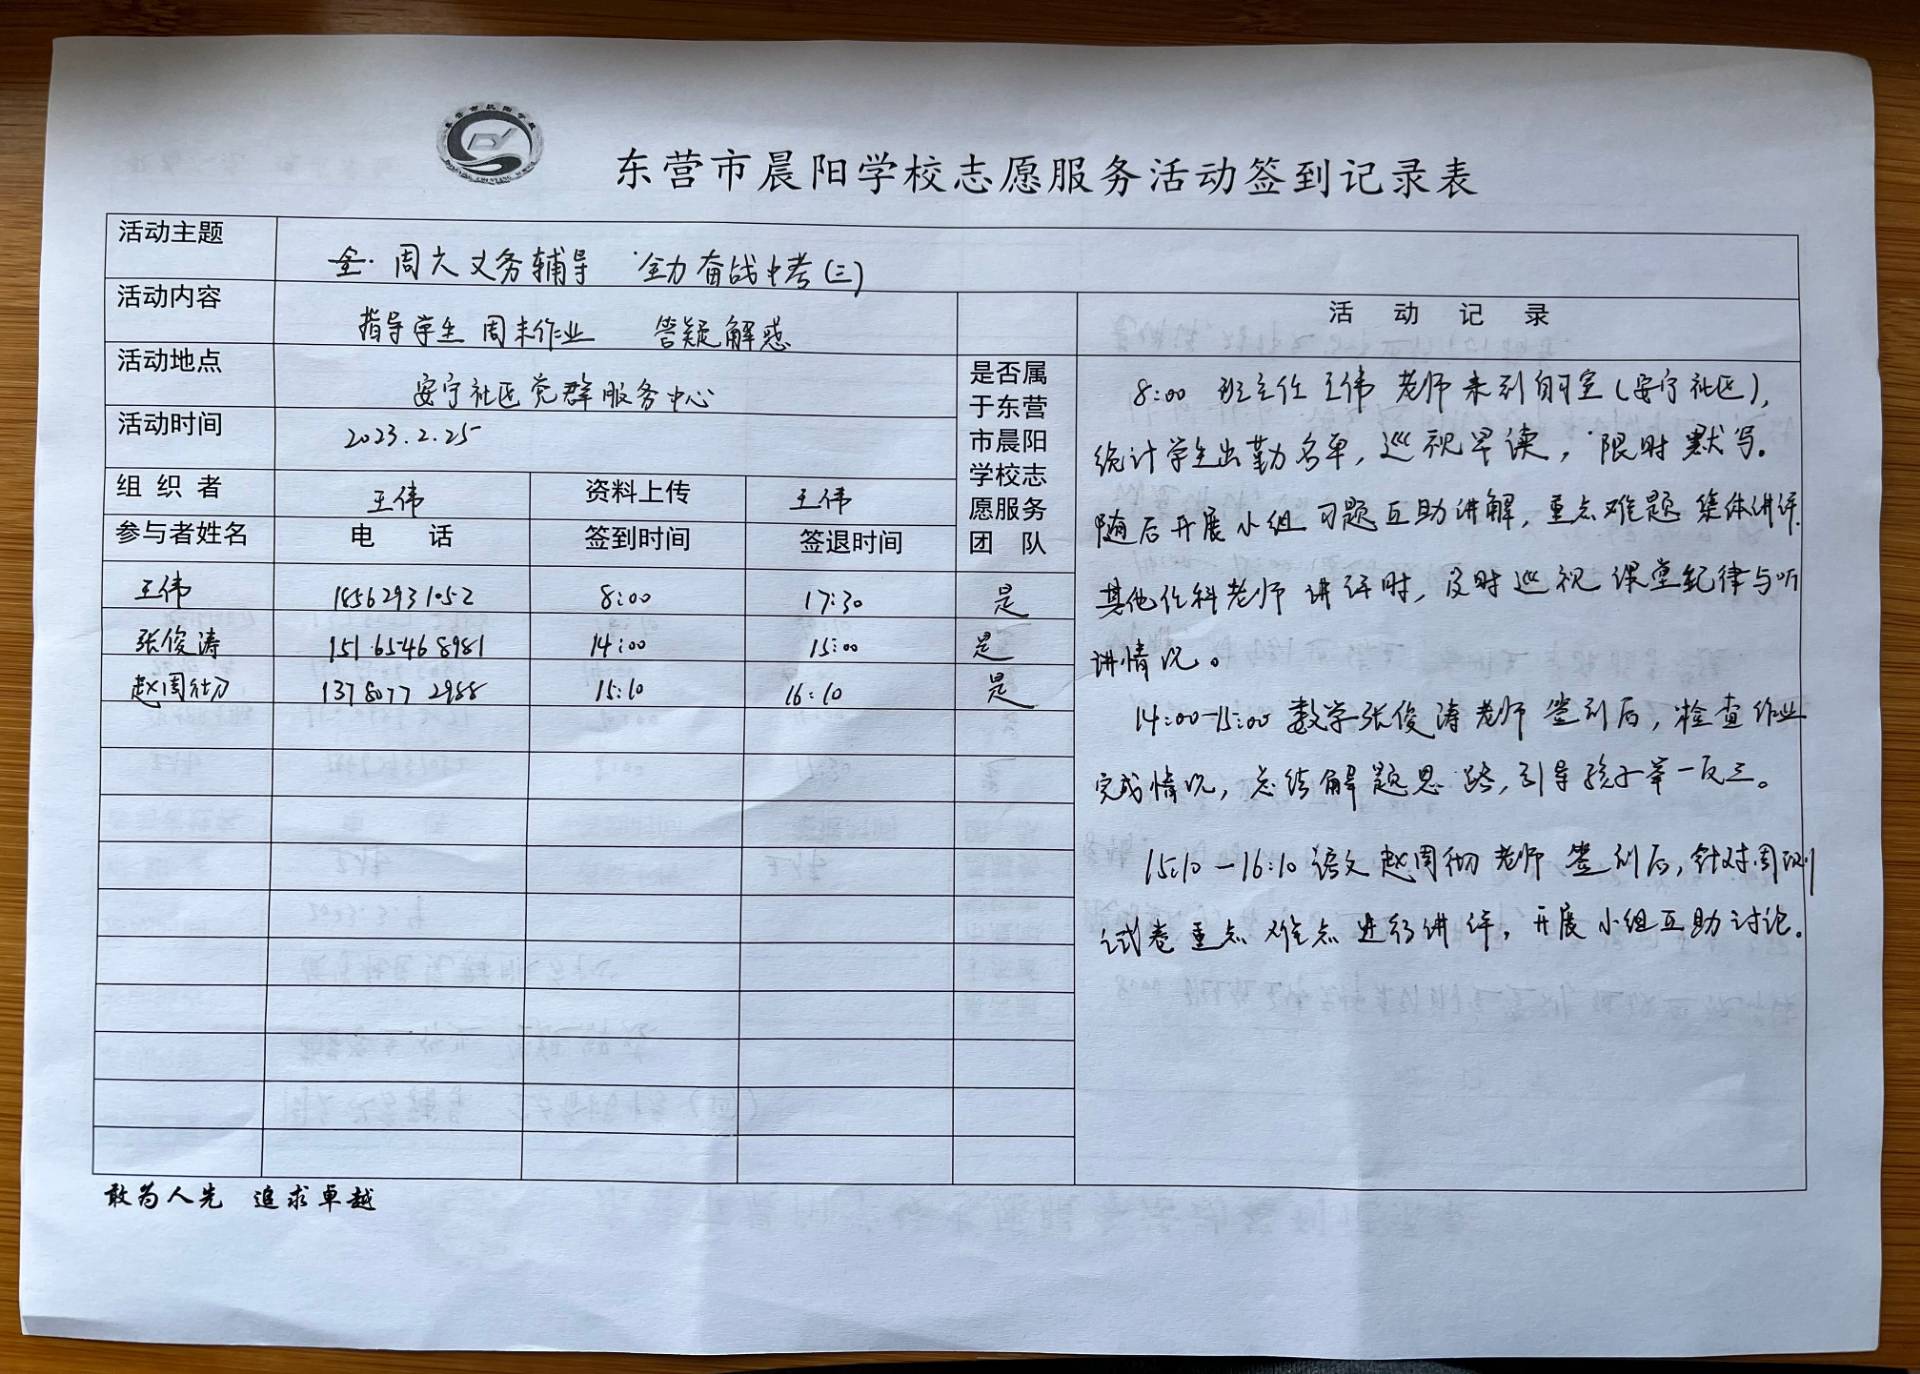 东营市晨阳学校志愿服务活动签到记录表
活动主题 周六义务辅导 全力奋战中考(三)
活动内容 指导学生周末作业 答疑解惑
活动记录
活动地点 安宁社区党群服务中心
活动时间 2023.2.25
组织者 王伟 资料上传 王伟
参与者姓名 电话 签到时间 签退时间
是否属
于东营
市晨阳
学校志
愿服务
团队
王伟 18562931052 8:00 17:30 是
张俊涛 15165468981 14:00 15:00 是
赵周彻 13780772988 15:10 16:10 是
8:00 班主任王伟老师来到自习室(安宁社区),
统计学生出勤名单,巡视早读,限时默写。
随后开展小组习题互助讲解,重点难题集体讲评.
其他任科老师讲评时,及时巡视课堂纪律与听
讲情况。
14:00-15:00 数学张俊涛老师签到后,检查作业
完成情况,总结解题思路,引导孩子举一反三。
15:10-16:10 语文赵周彻老师签到后,针对周测
试卷重点难点进行讲评,开展小组互助讨论。
敢为人先 追求卓越